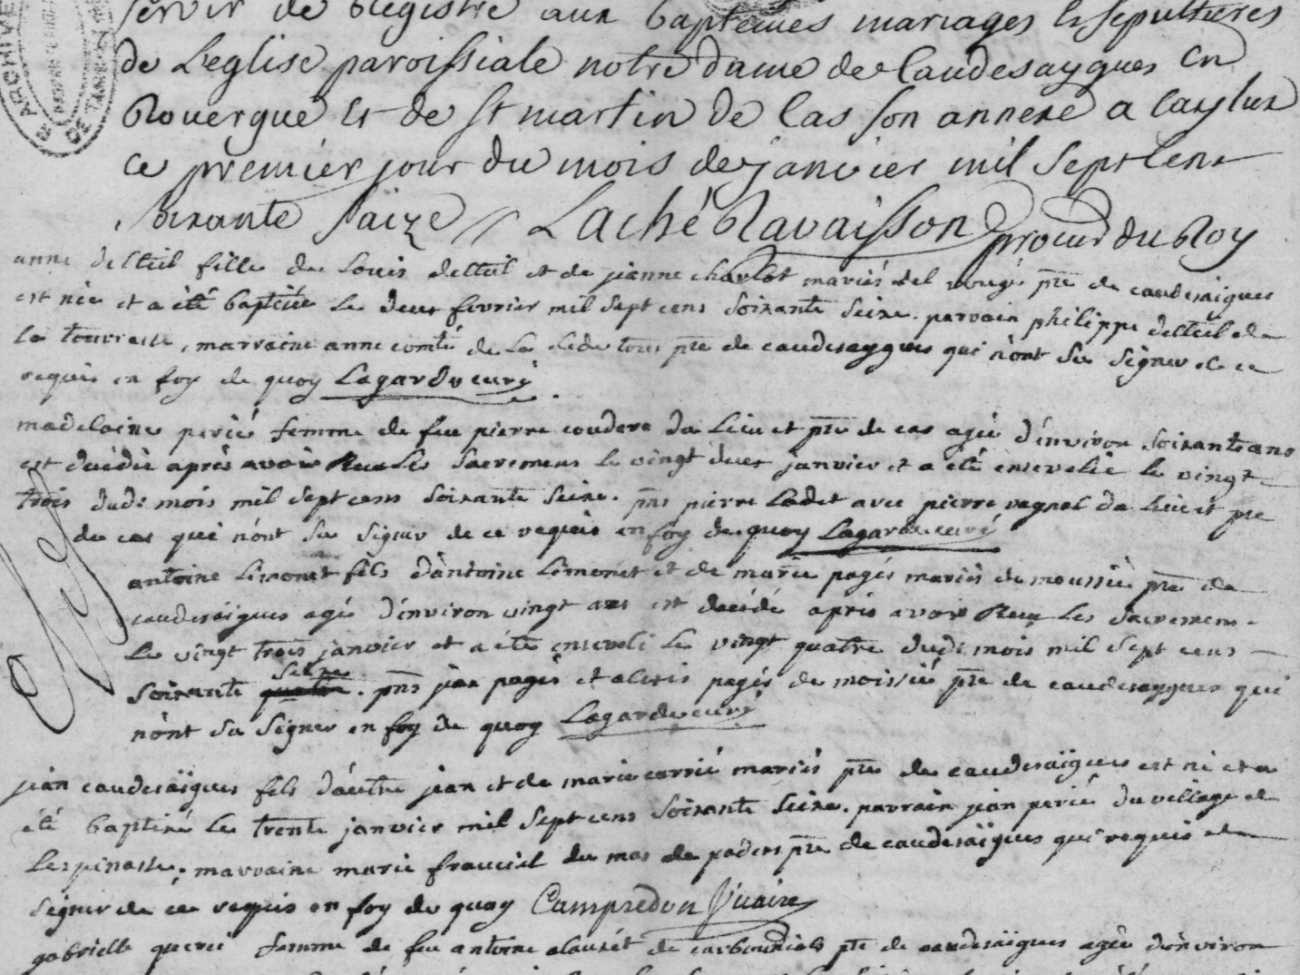 servir de Registre aux baptemes mariages et sepultures
de Leglise paroissiale notre dame de Caudesaygues en
Rouergue et de st martin de Cas son annexe a Caylus
ce premier jour du mois de janvier mil sept cent
soixante saize Laché Ravaisson procur du Roy
anne delteil fille de Louis delteil et de jeanne charlot mariés del pre de caudesaigues
est née et a été baptisée le deux fevrier mil sept cens soixante seize. parrain philippe delteil de
la marraine anne comté de la pre de caudesaygues qui n'ont su signer de ce
requis en foy de quoy Lagarde curé
madelaine perié femme de feu pierre couderc du lieu et pre de cas agée d'environ soixante ans
est decedée après avoir Reçu les sacremens le vingt deux janvier et a été ensevelie le vingt
trois dudi mois mil sept cens soixante seize. pns pierre Ladet avec pierre vagnal du lieu et pre
de cas qui n'ont su signer de ce requis en foy de quoy Lagarde curé
antoine Limonet fils d'antoine Limonet et de marie pagés mariés de moussié pre de
caudesaigues agé d'environ vingt ans est decedé après avoir Reçu les sacremens
le vingt trois janvier et a été enseveli le vingt quatre dudi mois mil sept cens
seize
soixante quatre. pns jean pagés et alexis pagés de moissié pre de caudesaygues qui
n'ont su signer en foy de quoy Lagarde curé
jean caudesaïgues fils d'autre jean et de marie carrié mariés pre de caudesaïgues est né et a
été baptisé le trente janvier mil sept cens soixante seize. parrain jean perié du village de
Lespinasse. marraine marie frauciel du mas de pre de caudesaïgues qui requis de
signer de ce requis en foy de quoy Campredon Vicaire
gabrielle femme de feu antoine clauzét de pre de caudesaïgues agée d'environ